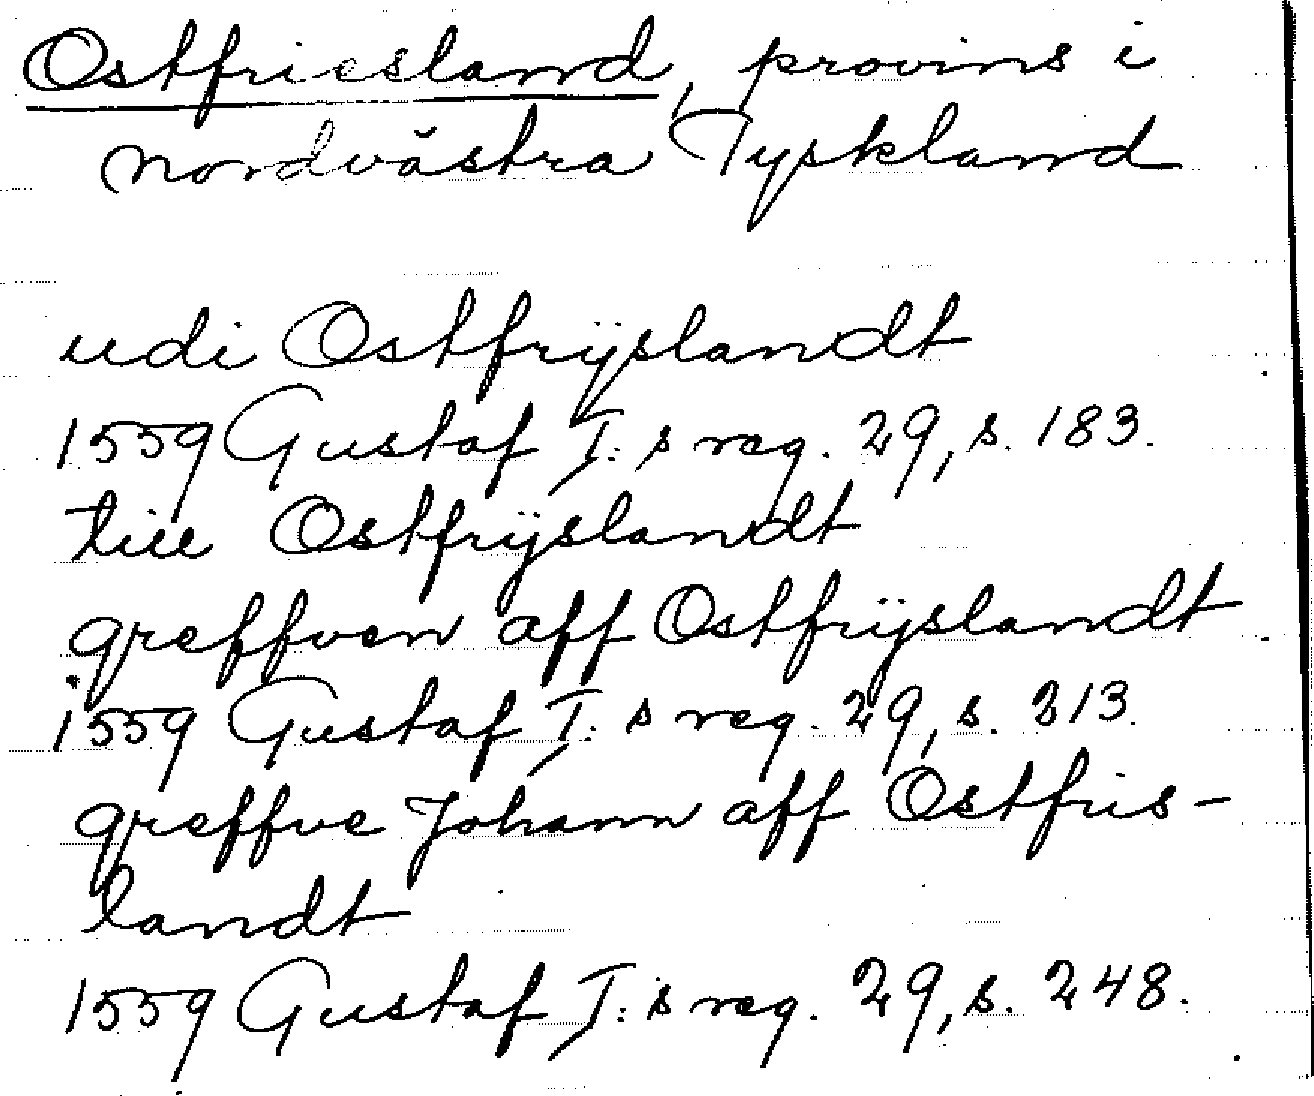 Ostfriesland, provins i
nordvästra Tyskland
udi Ostfrÿslandt
1559 Gustaf I:s reg. 29, s. 183.
till Ostfrÿslandt
greffven aff Ostfrÿslandt
1559 Gustaf I:s reg. 29, s. 213.
greffve Johann aff Ostfris-
landt
1559 Gustaf I:s reg. 29, s. 248.